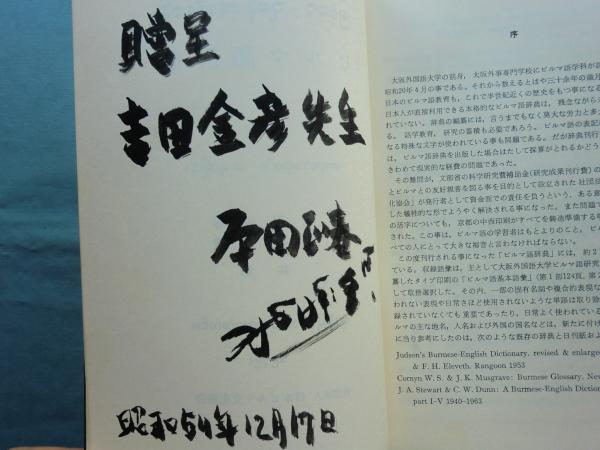 贈呈
吉田金彦先生
原田正春
昭和54年12月17日
序
大阪外国語大学の前身，大阪外事専門学校にビルマ語学科が設
昭和20年4月の事である。それから数えるとはや三十余年の歳月
日本のビルマ語教育も，これで半世紀近くの歴史をもつ事になる
日本人が直接利用できる本格的なビルマ語辞典は，残念ながら
れていない。辞典の編纂には，言うまでもなく莫大な労力と多
る。語学教育，研究の蓄積も必要であろう。ビルマ語の表記
なる特殊な文字が使われている事も問題である。だが辞典刊行
は，ビルマ語辞典を出版した場合はたして採算がとれるかどう
きわめて現実的な経費の問題であった。
その難問が，文部省の科学研究費補助金(研究成果刊行費)の
とビルマとの友好親善を図る事を目的として設立された社団法
化協会）が発行者として資金面での責任を負うという，ある意
した犠牲的な形でようやく解決される事になった。また問題
の活字についても，京都の中西印刷がすべてを鋳造準備する
された。この事は，ビルマ語の学習者はもとよりのこと，ビル
べての人にとって大きな福音と言わなければならない。
この度刊行される事になった「ビルマ語辞典」には，約2
ている。収録語彙は，主として大阪外国語大学ビルマ語研究
纂したタイプ印刷の「ビルマ語基本語彙」（第1部124頁，第2
して取捨選択した。その内，一部の固有名詞や複合的表現な
われない表現や日常さほど使用されないような単語は取り除
録されていなくても重要であったり，日常よく使われている
ルマの主な地名，人名および外国の国名などは，新たに付け
に当り参考にしたのは，次のような既存の辞典と日刊紙およ
Judson's Burmese-English Dictionary, revised & enlarged
& F. H. Eleveth. Rangoon 1953
Cornyn W. S. & J. K. Musgrave: Burmese Glossary, New
J. A. Stewart & C. W. Dunn: A Burmese-English Diction
part I-V 1940-1963